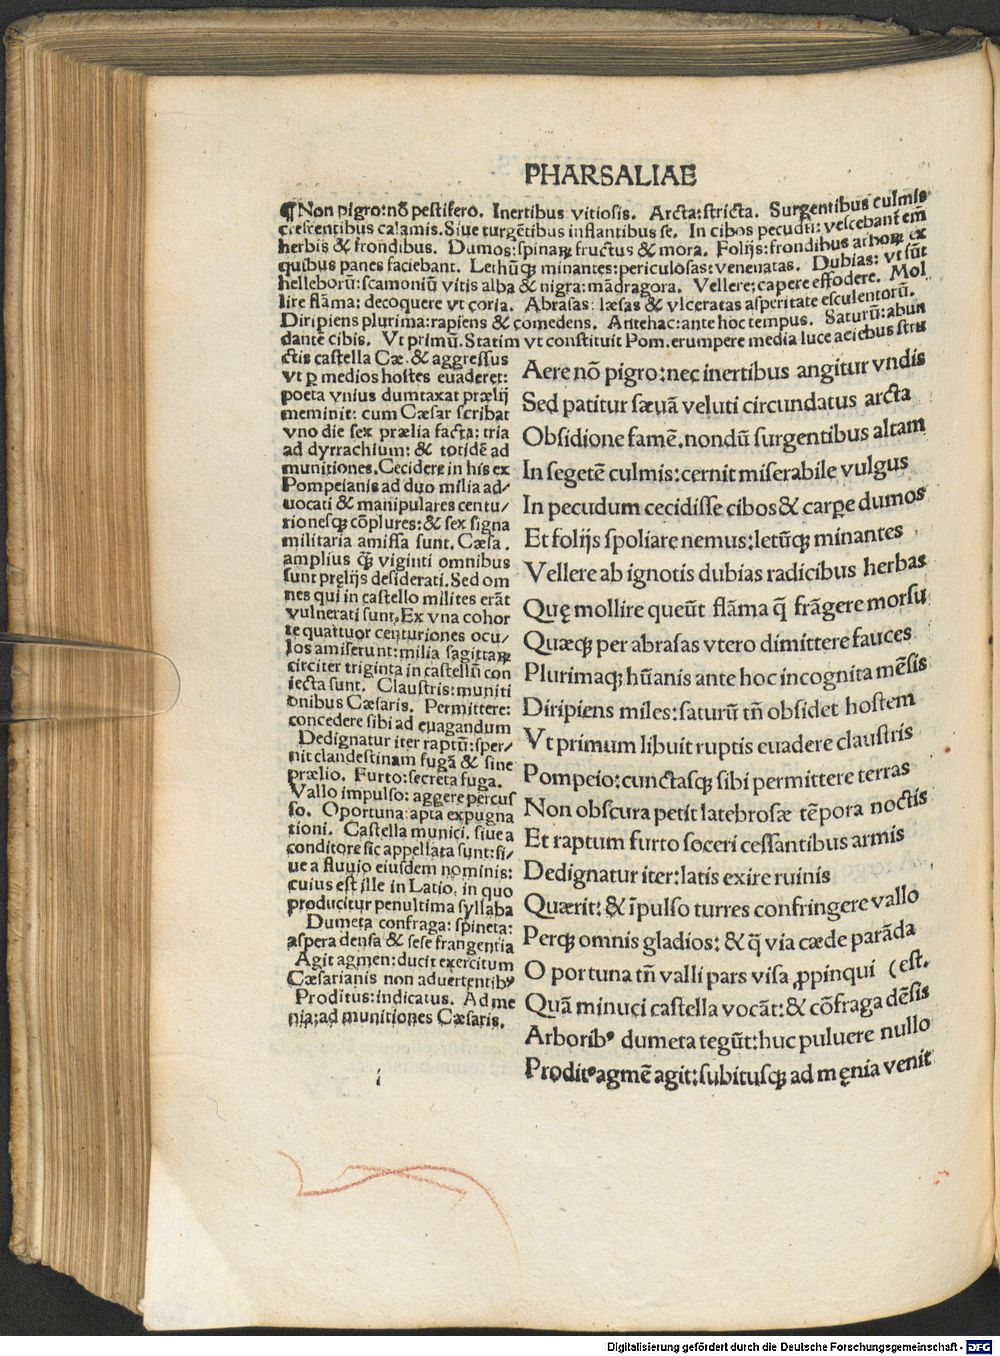 PHARSALIAE
¶Non pigro:nõ pestifero. Inertibus vitiosis. Arcta:stricta. Surgentibus culmis
crescentibus calamis.Siue turgẽtibus inflantibus se. In cibos pecudũ: vescebant em̃
herbis & frondibus. Dumos:spinaꝝ fructus & mora. Folijs:frondibus arboꝝ ex
quibus panes faciebant. Lethũqꝫ minantes:periculosas:venenatas. Dubias: vt sũt
helleborũ:scamoniũ vitis alba & nigra:mãdragora. Vellere:capere effodere. Mol
lire flãma: decoquere vt coria. Abrasas: læsas & vlceratas asperitate esculentorũ.
Diripiens plurima:rapiens & comedens. Antehac:ante hoc tempus. Saturũ:abun
dantẽ cibis. Vt primũ.Statim vt constituit Pom.erumpere media luce aciebus stru
ctis castella Cæ.& aggressus
vt ꝑ medios hostes euaderet:
poeta vnius dumtaxat prælij
meminit: cum Cæsar scribat
vno die sex prælia facta: tria
ad dyrrachium: & totidẽ ad
munitiones.Cecidere in his ex
Pompeianis ad duo milia ad/
uocati & manipulares centu/
rionesqꝫ cõplures:& sex signa
militaria amissa sunt. Cæsa.
amplius q̃ꝫ viginti omnibus
sunt pręlijs desiderati.Sed om
nes qui in castello milites erãt
vulnerati sunt.Ex vna cohor
te quattuor centuriones ocu/
los amiserunt:milia sagittaꝝ
circiter triginta in castellũ con
iecta sunt. Claustris:muniti
onibus Cæsaris. Permittere:
concedere sibi ad euagandum
Dedignatur iter raptũ:sper/
nit clandestinam fugã & sine
prælio. Furto:secreta fuga.
Vallo impulso: aggere percus
so. Oportuna:apta expugna
tioni. Castella munici. siue a
conditore sic appellata sunt:si/
ue a fluuio eiusdem nominis:
cuius est ille in Latio, in quo
producitur penultima syllaba
Dumeta confraga: spineta:
aspera densa & sese frangentia
Agit agmen:ducit exercitum
Cæsarianis non aduertentibꝰ
Proditus:indicatus. Ad me
nia:ad munitiones Cæsaris.
Aere nõ pigro:nec inertibus angitur vndis
Sed patitur sæuã veluti circundatus arcta
Obsidione famẽ.nondũ surgentibus altam
In segetẽ culmis:cernit miserabile vulgus
In pecudum cecidisse cibos& carꝑe dumos
Et folijs spoliare nemus:letũqꝫ minantes
Vellere ab ignotis dubias radicibus herbas
Quę mollire queũt flãma q̃ frãgere morsu
Quæqꝫ per abrasas vtero dimittere fauces
Plurimaqꝫ hũanis ante hoc incognita mẽsis
Diripiens miles:saturũ tñ obsidet hostem
Vt primum libuit ruptis euadere claustris
Pompeio:cunctasqꝫ sibi permittere terras
Non obscura petit latebrosæ tẽpora noctis
Et raptum furto soceri cessantibus armis
Dedignatur iter:latis exire ruinis
Quærit: & ĩpulso turres confringere vallo
Perqꝫ omnis gladios: & q̃ via cæde parãda
Oportuna tñ valli pars visa ꝓpinqui (est.
Quã minuci castella vocãt:& cõfraga dẽsis
Arboribꝰ dumeta tegũt:huc puluere nullo
Proditꝰ agmẽ agit:subitusqꝫ ad męnia venit
i
Digitalisierung gefördert durch die Deutsche Forschungsgemeinschaft - DFG